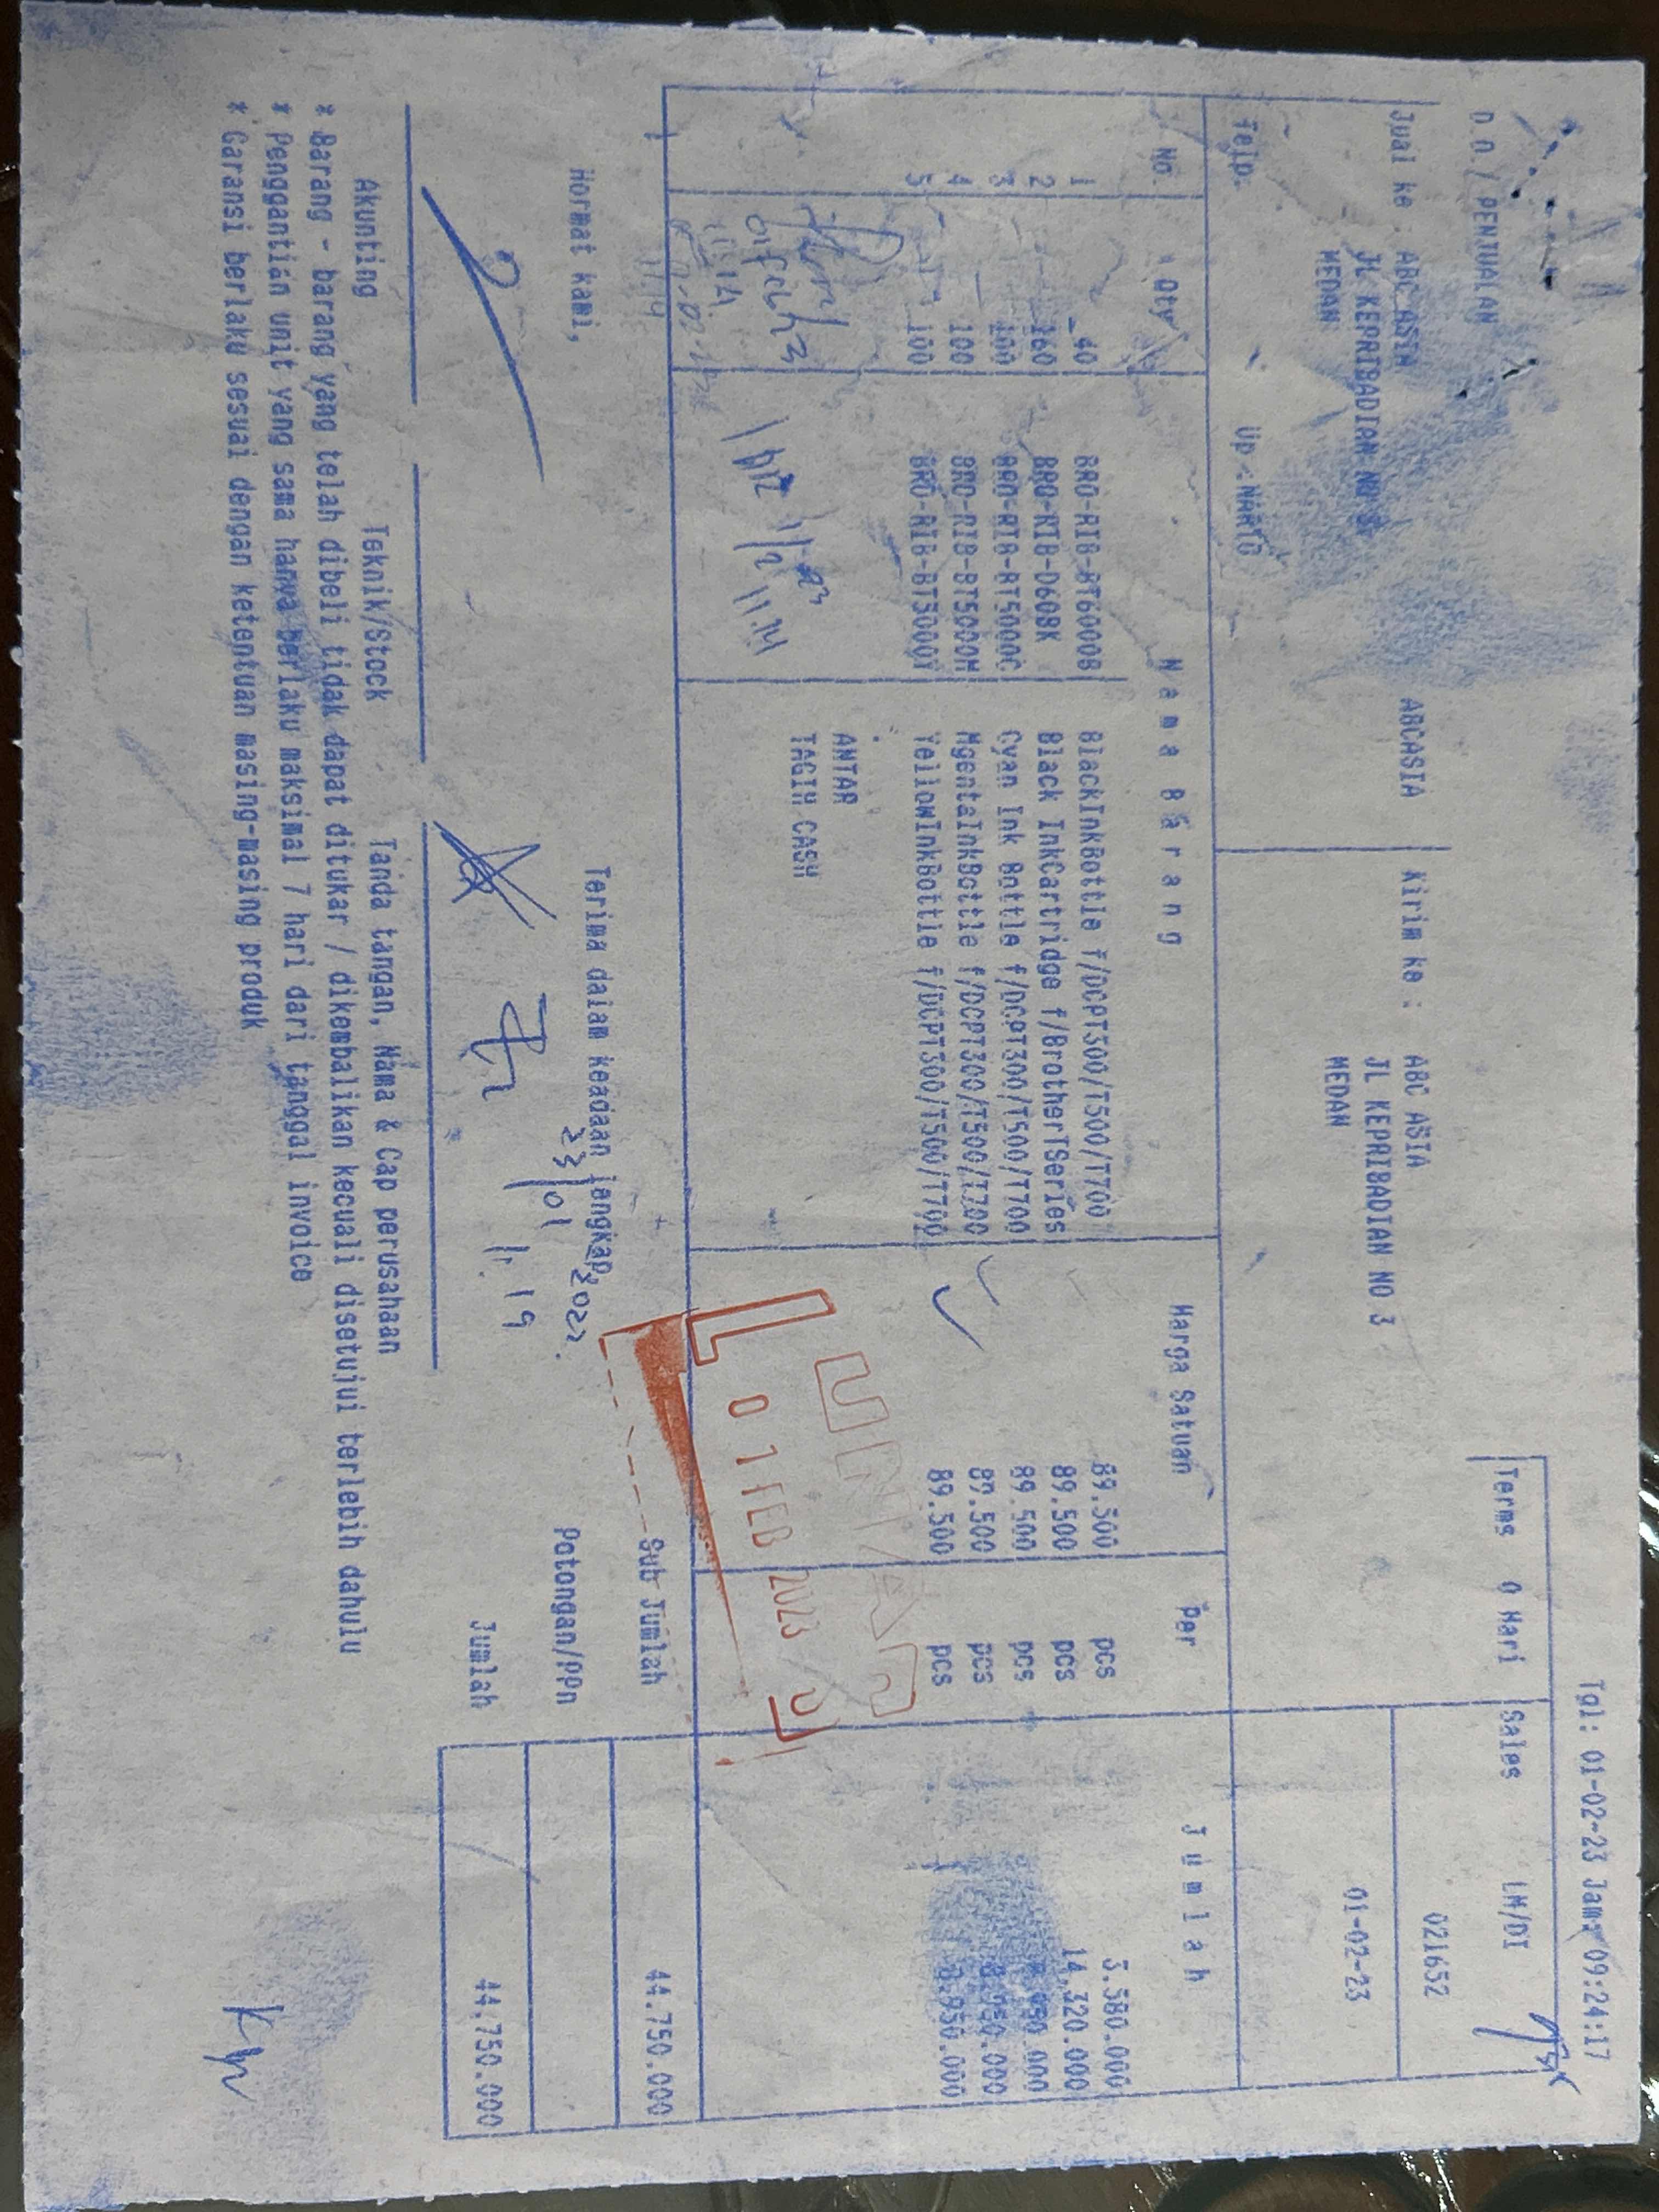 Tgl: 01-02-23 Jam: 09:24:17
D.O / PENJUALAN
Terms 0 Hari Sales LM/DI
Jual ke : ABC ASIA ABCASIA Kirim ke : ABC ASIA 021652
JL KEPRIBADIAN NO 3 JL KEPRIBADIAN NO 3
MEDAN MEDAN 01-02-23
Telp: Up : NARTO
No. Qty Nama Barang Harga Satuan Per Jumlah
1 40 BRO-RIB-BT6000B BlackInkBottle f/DCPT300/T500/T700 89.500 pcs 3.580.000
2 160 BRO-RIB-D60BK Black InkCartridge f/BrotherTSeries 89.500 pcs 14.320.000
3 100 BRO-RIB-BT5000C Cyan Ink Bottle f/DCPT300/T500/T700 89.500 pcs 8.950.000
4 100 BRO-RIB-BT5000M MgentaInkBottle f/DCPT300/T500/T700 89.500 pcs 8.950.000
5 100 BRO-RIB-BT5000Y YellowInkBottle f/DCPT300/T500/T700 89.500 pcs 8.950.000
ANTAR
TAGIH CASH
01 Feb 23
11:14
1/2 23
11.14
01 FEB 2023
Sub Jumlah 44.750.000
Hormat kami, Terima dalam keadaan lengkap, Potongan/PPn
23/01 2022
11.19
Jumlah 44.750.000
Akunting Teknik/Stock Tanda tangan, Nama & Cap perusahaan
* Barang - barang yang telah dibeli tidak dapat ditukar / dikembalikan kecuali disetujui terlebih dahulu
* Penggantian unit yang sama hanya berlaku maksimal 7 hari dari tanggal invoice
* Garansi berlaku sesuai dengan ketentuan masing-masing produk